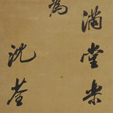 滿堂
為
沈荃